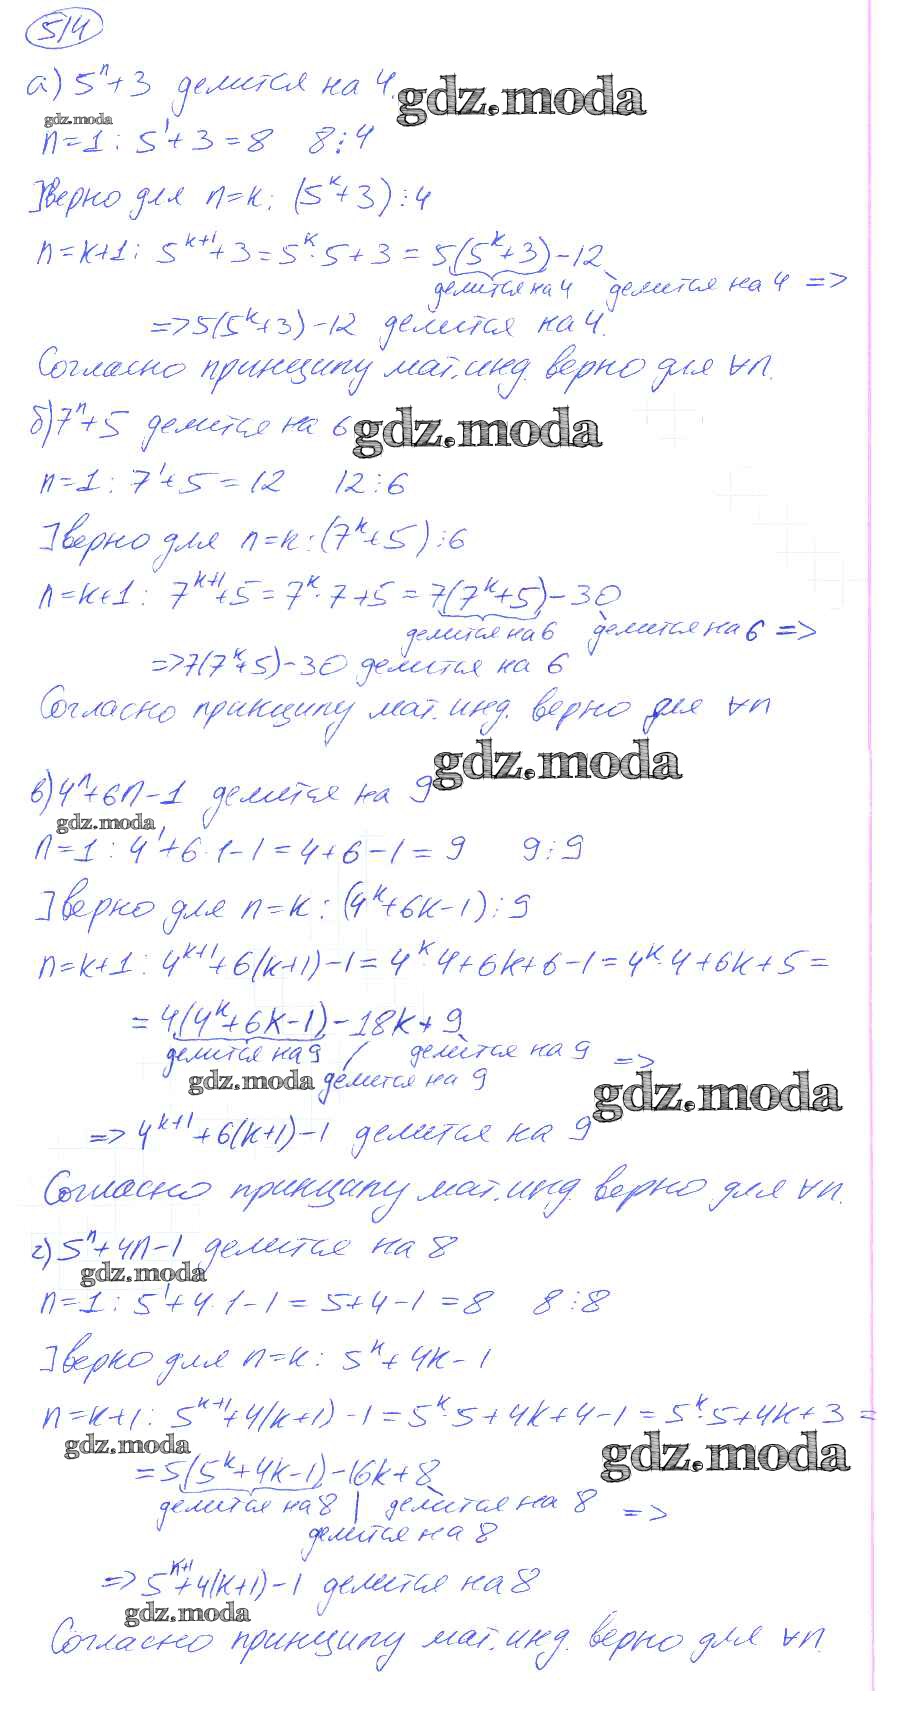 514
а) 5ⁿ+3 делится на 4. gdz.moda
gdz.moda
n=1: 5¹+3=8 8⋮4
]верно для n=k: (5ᵏ+3)⋮4
n=k+1: 5ᵏ⁺¹+3=5ᵏ·5+3=5(5ᵏ+3)-12
делится на 4 делится на 4 =>
=>5(5ᵏ+3)-12 делится на 4.
Согласно принципу мат.инд. верно для ∀n.
б) 7ⁿ+5 делится на 6 gdz.moda
n=1: 7¹+5=12 12⋮6
]верно для n=k: (7ᵏ+5)⋮6
n=k+1: 7ᵏ⁺¹+5=7ᵏ·7+5=7(7ᵏ+5)-30
делится на 6 делится на 6 =>
=>7(7ᵏ+5)-30 делится на 6
Согласно принципу мат.инд. верно для ∀n
в) 4ⁿ+6n-1 делится на 9 gdz.moda
gdz.moda
n=1: 4¹+6·1-1=4+6-1=9 9⋮9
]верно для n=k: (4ᵏ+6k-1)⋮9
n=k+1: 4ᵏ⁺¹+6(k+1)-1=4ᵏ·4+6k+6-1=4ᵏ·4+6k+5=
=4(4ᵏ+6k-1)-18k+9
делится на 9 / делится на 9 =>
gdz.moda делится на 9 gdz.moda
=> 4ᵏ⁺¹+6(k+1)-1 делится на 9
Согласно принципу мат.инд. верно для ∀n.
г) 5ⁿ+4n-1 делится на 8
gdz.moda
n=1: 5¹+4·1-1=5+4-1=8 8⋮8
]верно для n=k: 5ᵏ+4k-1
n=k+1: 5ᵏ⁺¹+4(k+1)-1=5ᵏ·5+4k+4-1=5ᵏ·5+4k+3=
gdz.moda gdz.moda
=5(5ᵏ+4k-1)-16k+8
делится на 8 | делится на 8 =>
делится на 8
=> 5ᵏ⁺¹+4(k+1)-1 делится на 8
gdz.moda
Согласно принципу мат.инд. верно для ∀n.